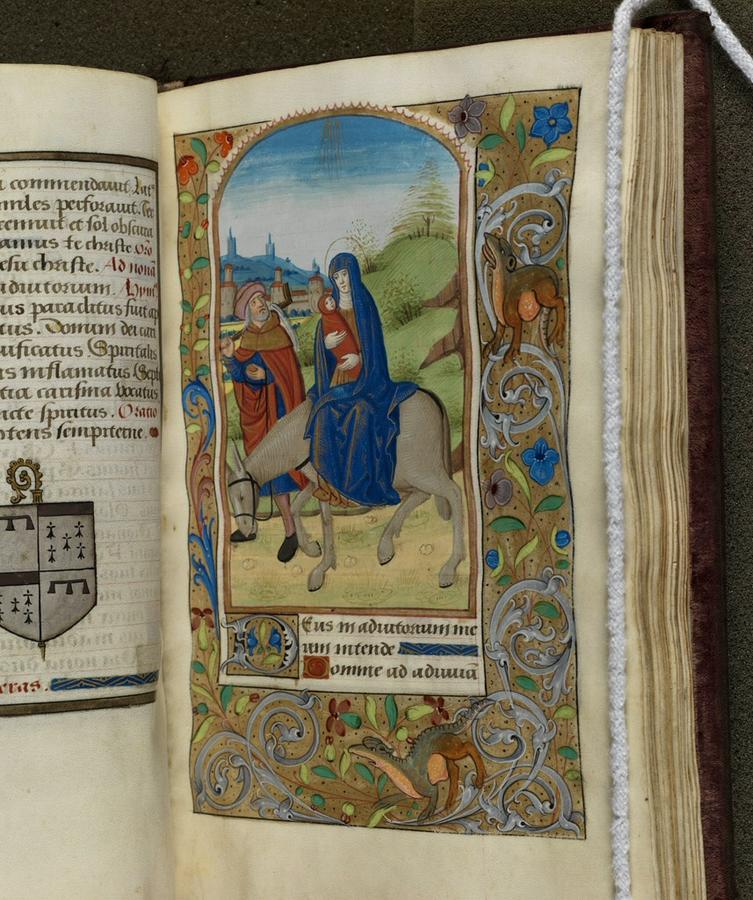 commendauit
miles perforauit.
remuit et sol obscura
amus te christe Oro
esu christe. Ad nonā
adiutorium. Hym
us paraclitus fuit ap
tus. Donum dei cari
uificatus Spiritalis
s inflamatus Sept
tia carisma vocatus
ncte spiritus. Oratio
otens sempiterne.
eras.
Eus in adiutorium me
um intende
Domine ad adiuuā